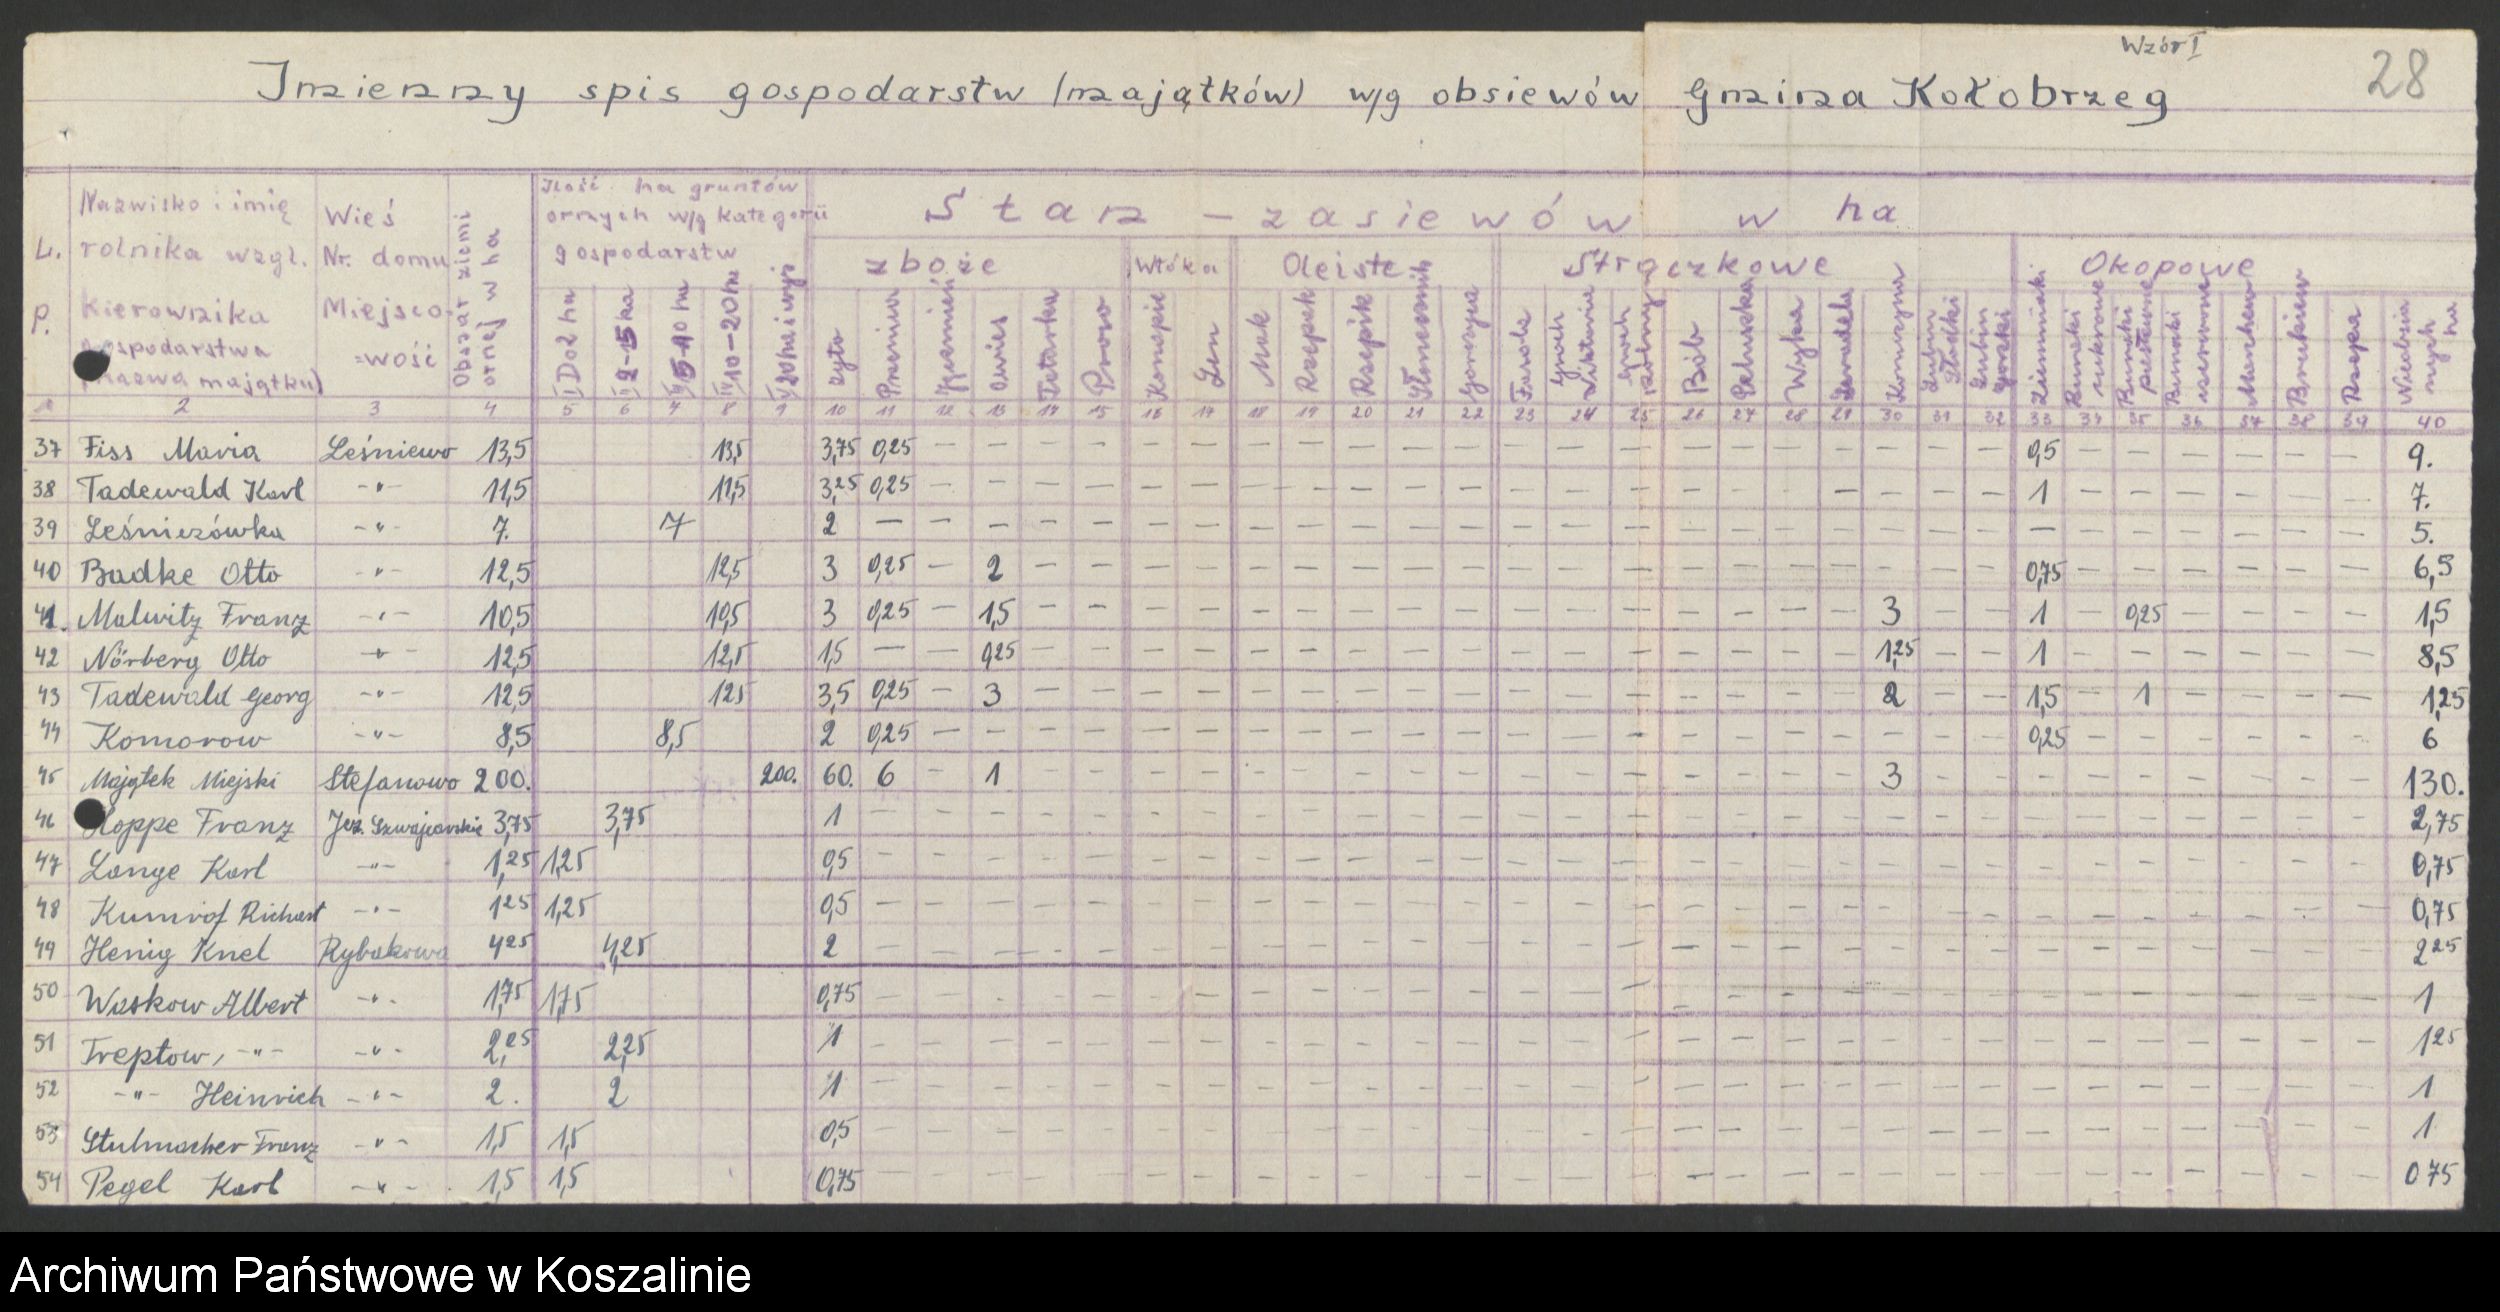 Wzór I
28
Imienny spis gospodarstw (majątków) w/g obsiewów Gmina Kołobrzeg
L. P.
Nazwisko i imię rolnika wzgl. Kierownika gospodarstwa (nazwa majątku)
Wieś Nr. domu Miejsco=wość
Obszar ziemi ornej w ha
Ilość ha gruntów ornych w/g kategorii gospodarstw
Stan - zasiewów w ha
zboże Włókna Oleiste Strączkowe Okopowe
I Do 2 ha
II 2-5 ha
III 5-10 ha
IV 10-20 ha
V 20 ha i wyż.
Żyto Pszenica Jęczmień Owies Tatarka Proso Konopie Len Mak Rzepak Rzepik Słonecznik Gorczyca Fasola Groch Wiktoria Groch polny Bób Peluszka Wyka Seradela Koniczyna Łubin słodki Łubin gorzki Ziemniaki Buraki cukrowe Buraki pastewne Buraki czerwone Marchew Brukiew Rzepa
1 2 3 4 5 6 7 8 9 10 11 12 13 14 15 16 17 18 19 20 21 22 23 24 25 26 27 28 29 30 31 32 33 34 35 36 37 38 39 40
37 Fiss Maria Leśniewo 13,5 13,5 3,75 0,25 — — — — — — — — — — — — — — — — — — — — 0,5 — — — — — — 9.
38 Tadewald Karl -"- 11,5 11,5 3,25 0,25 — — — — — — — — — — — — — — — — — — — — — 1 — — — — — — 7.
39 Leśniczówka -"- 7. 7 2 — — — — — — — — — — — — — — — — — — — — — — — — — — — — — 5.
40 Badke Otto -"- 12,5 12,5 3 0,25 — 2 — — — — — — — — — — — — — — — — — — — 0,75 — — — — — — 6,5
41. Malwitz Franz -"- 10,5 10,5 3 0,25 — 1,5 — — — — — — — — — — — — — — — — 3 — — 1 — 0,25 — — — — 1,5
42 Nörberg Otto -"- 12,5 12,5 1,5 — — 0,25 — — — — — — — — — — — — — — — — 1,25 — — 1 — — — — — — 8,5
43 Tadewald Georg -"- 12,5 12,5 3,5 0,25 — 3 — — — — — — — — — — — — — — — — 2 — — 1,5 — 1 — — — — 1,25
44 Komorow -"- 8,5 8,5 2 0,25 — — — — — — — — — — — — — — — — — — — — — 0,25 — — — — — — 6
45 Majątek Miejski Stefanowo 200. 200. 60. 6 — 1 — — — — — — — — — — — — — — — — 3 — — — — — — — — — 130.
46 Koppe Franz Jez. Szwajcarskie 3,75 3,75 1 — — — — — — — — — — — — — — — — — — — — — — — — — — — — — 2,75
47 Lange Karl -"- 1,25 1,25 0,5 — — — — — — — — — — — — — — — — — — — — — — — — — — — — — 0,75
48 Kumrof Richart -"- 1,25 1,25 0,5 — — — — — — — — — — — — — — — — — — — — — — — — — — — — — 0,75
49 Henig Knel Rybakowa 4,25 4,25 2 — — — — — — — — — — — — — — — — — — — — — — — — — — — — — 2,25
50 Waskow Albert -"- 1,75 1,75 0,75 — — — — — — — — — — — — — — — — — — — — — — — — — — — — — 1
51 Treptow, -"- -"- 2,25 2,25 1 — — — — — — — — — — — — — — — — — — — — — — — — — — — — — 1,25
52 -"- Heinrich -"- 2. 2 1 — — — — — — — — — — — — — — — — — — — — — — — — — — — — — 1
53 Stulmacher Franz -"- 1,5 1,5 0,5 — — — — — — — — — — — — — — — — — — — — — — — — — — — — — 1
54 Pegel Karl -"- 1,5 1,5 0,75 — — — — — — — — — — — — — — — — — — — — — — — — — — — — — 0,75
Archiwum Państwowe w Koszalinie